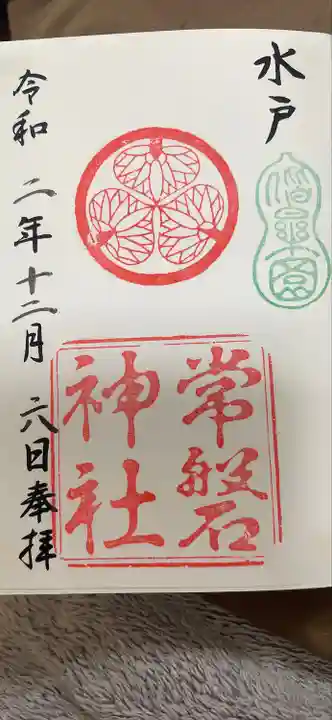 水戸
偕楽園
常磐
神社
令和二年十二月六日奉拝